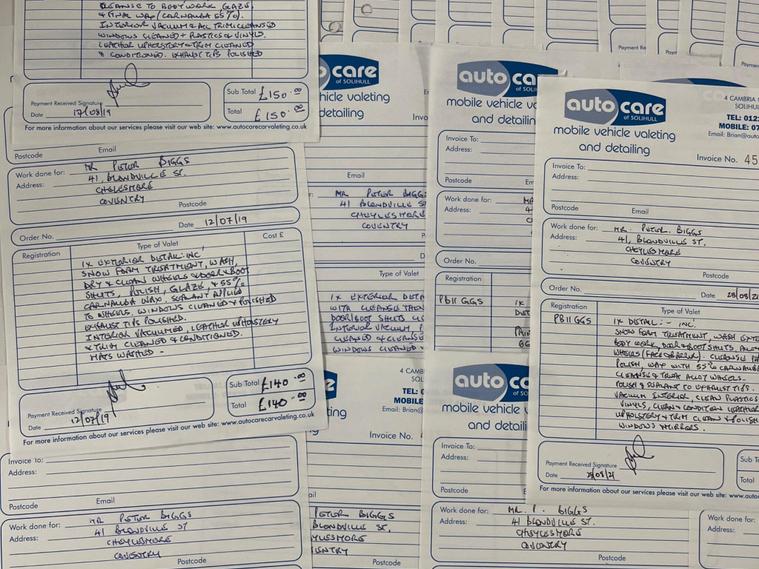 CLEANSE TO BODYWORK GLAZE
& FINAL WAX (CARNAUBA 55%).
INTERIOR VACUUM & ALL TRIM CLEANSED
WINDOWS CLEANED & PLASTICS & VINYLS.
LEATHER UPHOLSTERY & TRIM CLEANED
& CONDITIONED. EXHAUST TIPS POLISHED
Sub Total £150.00
Payment Received Signature
Total £150.00
Date 17/08/19
For more information about our services please visit our web site: www.autocarecarvaleting.co.uk
Postcode Email
Work done for: MR PETER BIGGS
Address: 41, BLONDVILLE ST.
CHEYLESMORE
COVENTRY
Postcode
Order No. Date 12/07/19
Registration Type of Valet Cost £
1X EXTERIOR DETAIL INC'
SNOW FOAM TREATMENT, WASH,
DRY & CLEAN WHEELS & DOOR & BOOT
SHUTS, POLISH, GLAZE & 55%
CARNAUBA WAX, SEALANT APPLIED
TO WHEELS, WINDOWS CLEANED & POLISHED
EXHAUST TIPS POLISHED.
INTERIOR VACUUMED, LEATHER UPHOLSTERY
& TRIM CLEANED & CONDITIONED.
MATS WASHED -
Sub Total £140.00
Payment Received Signature
Total £140.00
Date 12/07/19
For more information about our services please visit our web site: www.autocarecarvaleting.co.uk
Invoice to:
Address:
Postcode Email
Work done for: MR PETER BIGGS
Address: 41 BLONDVILLE ST
CHEYLESMORE
COVENTRY
Postcode
care
OF SOLIHULL
hicle valeting
detailing
Email
MR PETER BIGGS
41 BLONDVILLE ST
CHEYLESMORE
COVENTRY
Type of Valet
1X EXTERIOR DETA
WITH CLEANSE
DOOR/BOOT SHUTS
INTERIOR VACUUM,
WINDOWS CLEANED
TEL:
MOBILE
Email: Brian@
Invoice No.
PETER BIGGS
BLONDVILLE ST,
YLESMORE
ENTRY
auto ca
OF
mobile vehicle va
and detailing
Invoice To:
Address:
Postcode
Work done for:
Address:
Order No.
Registration
PB11 GGS
auto
mobile vehicle
and detail
Invoice To:
Address:
Postcode Email
Work done for: MR. P. BIGGS
Address: 41 BLONDVILLE ST.
CHEYLESMORE
COVENTRY
Postcode
auto care
OF SOLIHULL
mobile vehicle valeting
and detailing
4 CAMBRIA
SOLIHU
TEL: 012
MOBILE: 07
Email: Brian@
Invoice No. 45
Invoice To:
Address:
Postcode Email
Work done for: MR. PETER. BIGGS
Address: 41, BLONDVILLE ST,
CHEYLESMORE
COVENTRY
Postcode
Order No. Date
Registration Type of Valet
PB11 GGS 1X DETAIL:- INC.
SNOW FOAM TREATMENT, WASH EXTE
BODY WORK, DOOR & BOOT SHUTS,
WHEELS (FACE & BARREL). CLEANSE
POLISH, WAX WITH 55% CARNAUBA
CLEANSE & TREAT ALLOY WHEELS.
POLISH & SEALANT TO EXHAUST TIPS.
VACUUM INTERIOR, CLEAN PLASTICS
VINYLS, CLEAN & CONDITION LEATHER
UPHOLSTERY & TRIM CLEAN & POLISH
WINDOWS MIRRORS.
Sub T
Payment Received Signature
Tota
Date
For more information about our services please visit our web site: www.auto